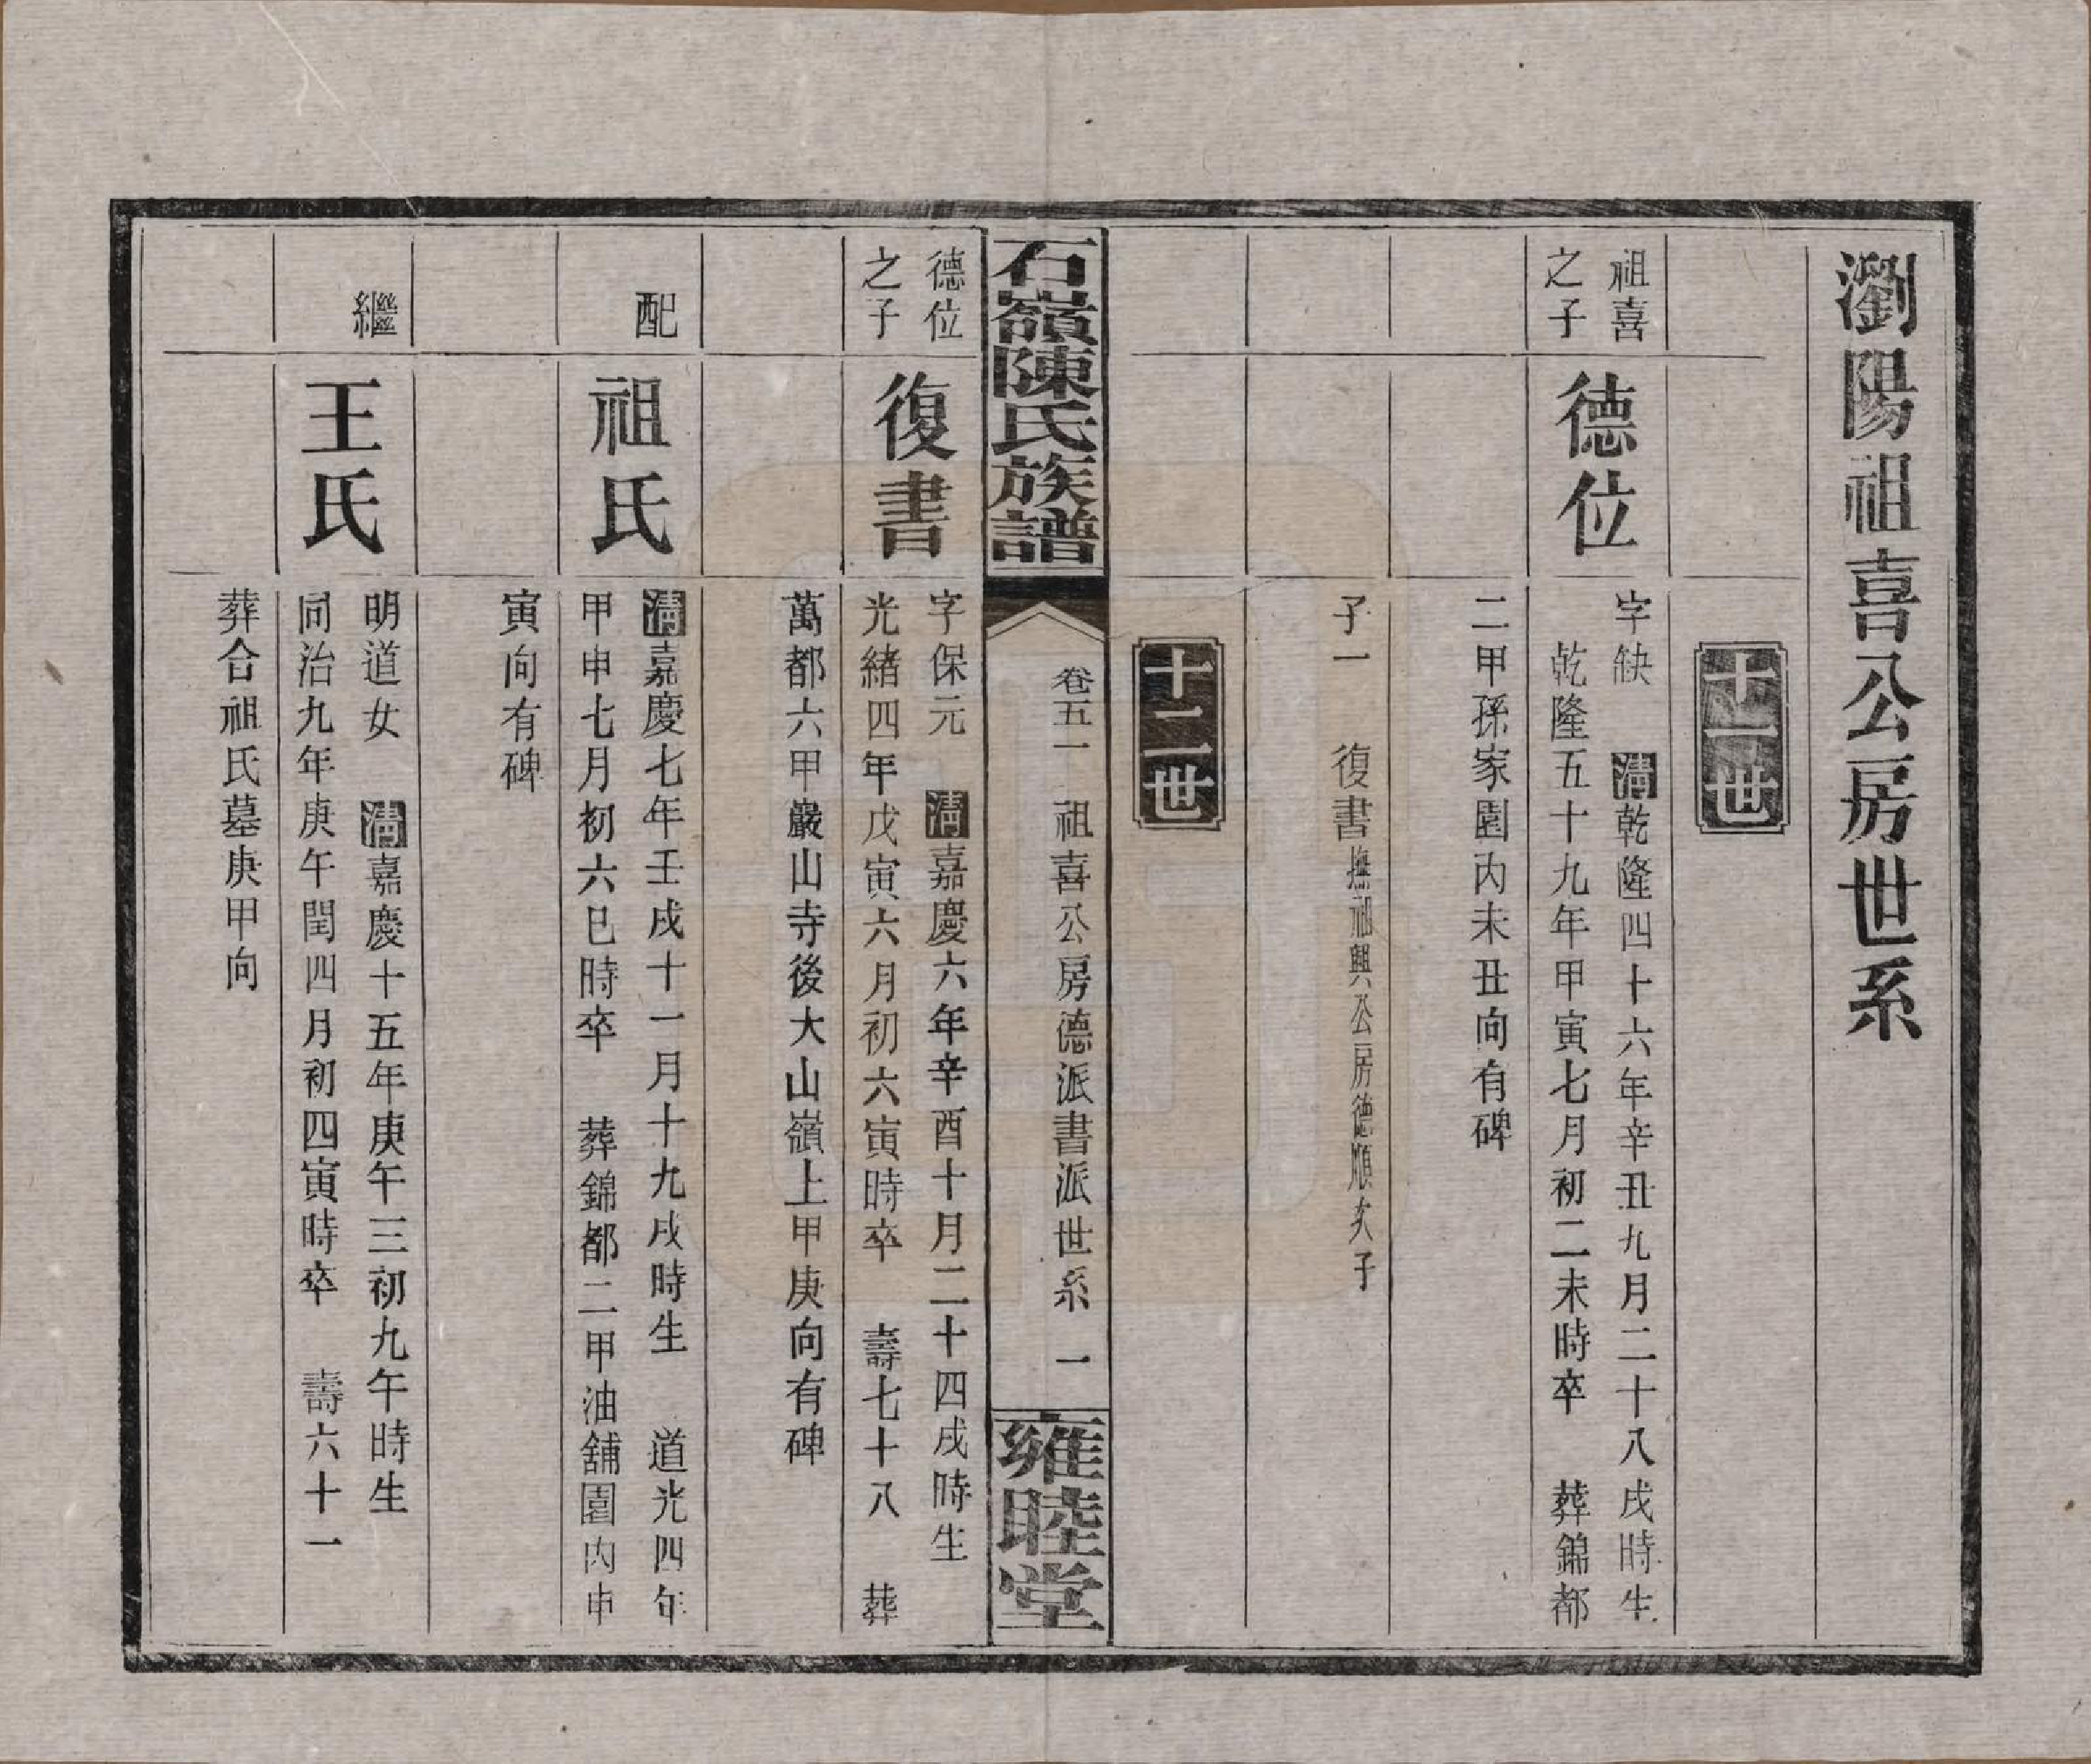 瀏陽祖喜公房世系
十一世
祖喜
之子
德位
字缺　清乾隆四十六年辛丑九月二十八戌時生
乾隆五十九年甲寅七月初二未時卒　葬錦都
二甲孫家園內未丑向有碑
子一　復書撫祖興公房德順次子
十二世
石嶺陳氏族譜
卷五一　祖喜公房德派書派世系　一
雍睦堂
德位
之子
復書
字保元　清嘉慶六年辛酉十月二十四戌時生
光緒四年戊寅六月初六寅時卒　壽七十八　葬
萬都六甲巖山寺後大山嶺上甲庚向有碑
配
祖氏
清嘉慶七年壬戌十一月十九戌時生　道光四年
甲申七月初六巳時卒　葬錦都二甲油舖園內申
寅向有碑
繼
王氏
明道女　清嘉慶十五年庚午三初九午時生
同治九年庚午閏四月初四寅時卒　壽六十一
葬合祖氏墓庚甲向